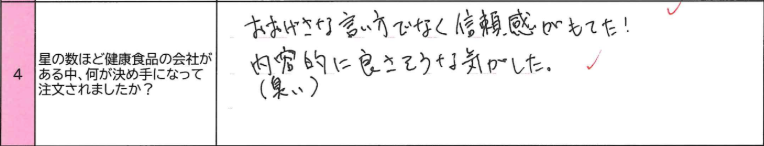 4
星の数ほど健康食品の会社が
ある中、何が決め手になって
注文されましたか？
おおげさな言い方でなく信頼感がもてた！
内容的に良さそうな気がした。
(臭い)